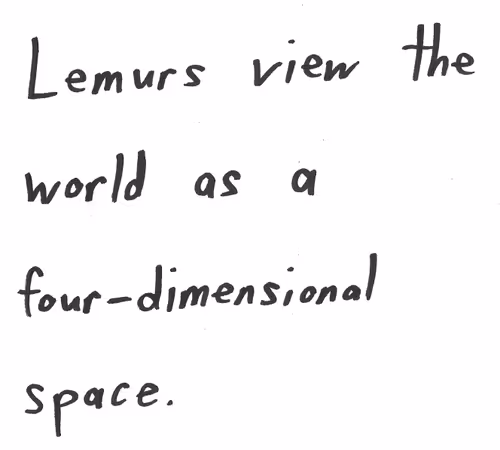 Lemurs view the
world as a
four-dimensional
space.